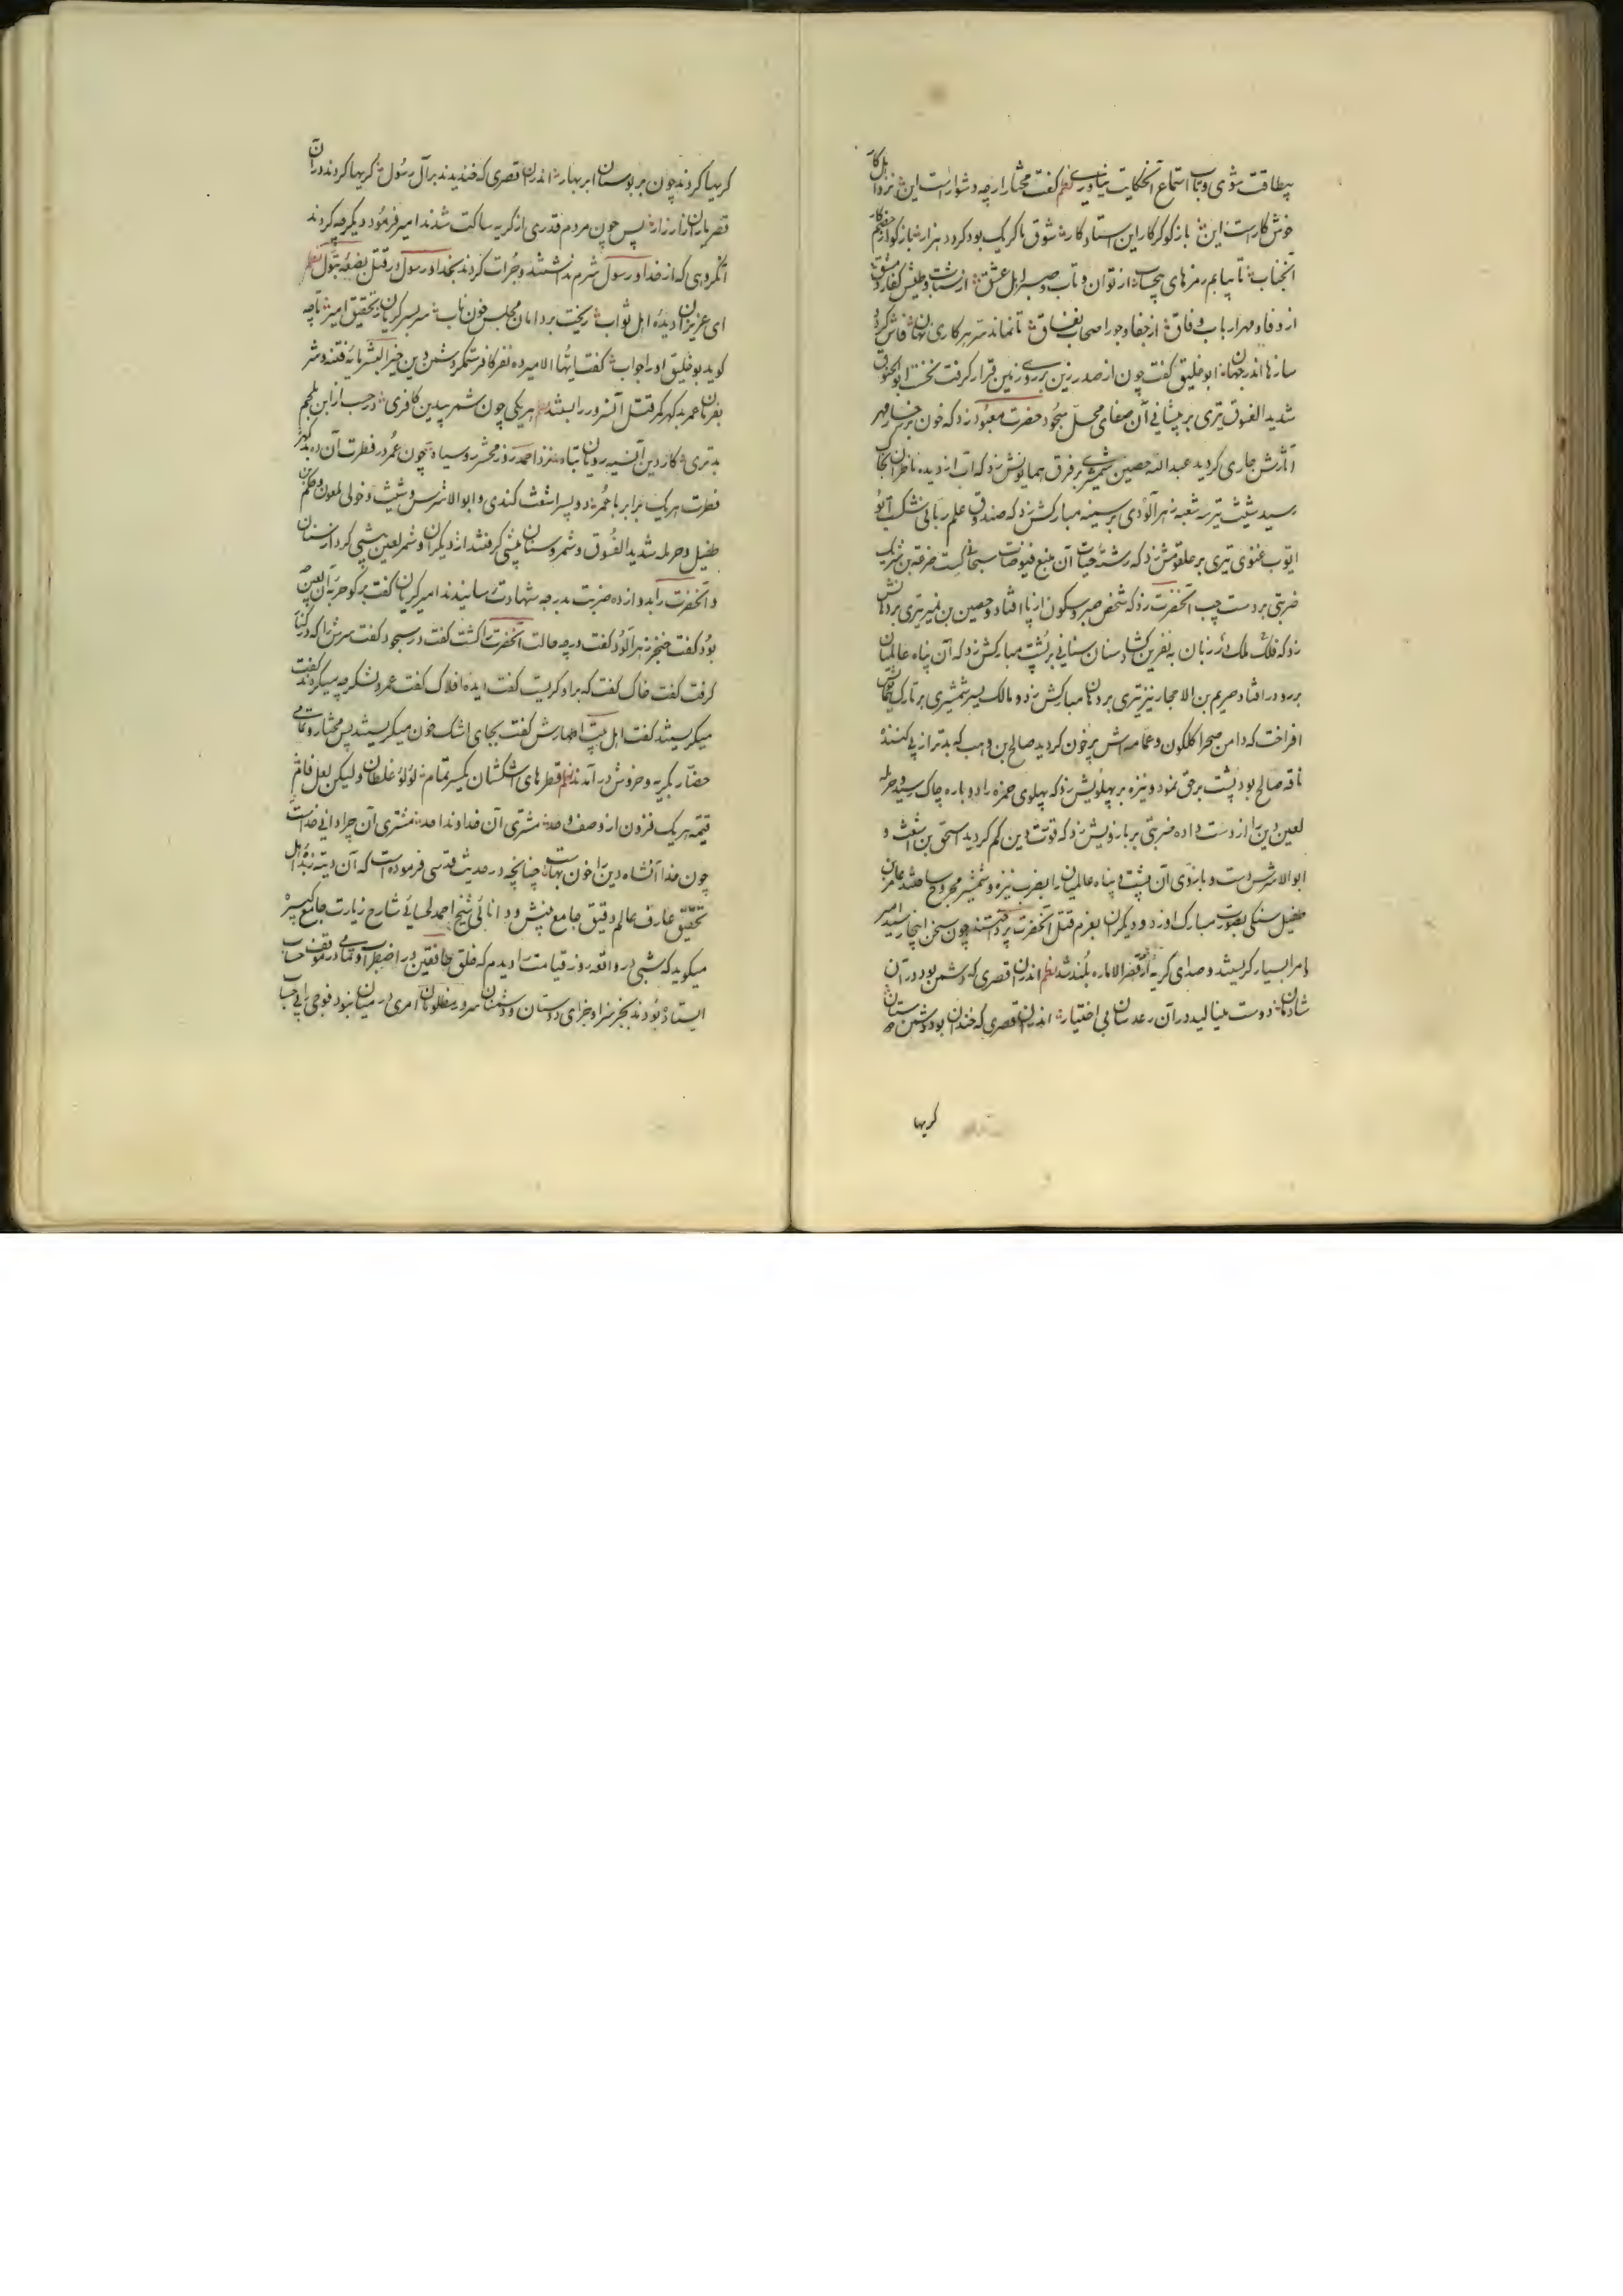 بیطاقت شوی و تاب استماع آنحکایت نیاوری نظم گفت مختار ار چه دشوار است این نزد اهل کار
خوش کار است این باز کو کرکار این استاد کار شوق ما کر یک بود کردد هزار باز کو از
آنجناب تا بیابم رمزهای از توان و تاب و صبر اهل عشق از شتاب و طیش کفار دمشق
از وفا و مهر ارباب وفاق از جفا و جور اصحاب نفاق تا نماند سر هر کاری نهان فاش کردد
سازها اندر جهان ابو خلیق گفت چون از صدر زین بر روی زمین قرار گرفت نخست ابو الحنوق
شدید الفسوق تیری بر پیشانی آن صفای محل سجود حضرت معبود زد که خون بر رخسار مهر
آثارش جاری گردید عبد الله حصین شمشیری بر فرق همایونش زد که آب از دیده ناظران
رسید شیث تیر سه شعبه زهرآلودی بر سینه مبارکش زد که صندوق علم ربانی شکست ابو
ایوب غنوی تیری بر حلقومش زد که رشته حیات آن منبع فیوضات سبحانی گسست ضرعة بن شریک
ضربتی بر دست چپ آنحضرت زد که شخص صبر و سکون از پا افتاد و حصین بن نمیر تیری بر دهانش
زد که فلک و ملک زبان به نفرین گشاد سنان سنانی بر پشت مبارکش زد که آن پناه عالمیان
برو در افتاد صریم بن الاحجار نیز تیری بر دهان مبارکش زد و مالک یسر شمشیری بر تارک
افراخت که دامن صحرا کلکون و عمامه اش پر خون گردید صالح بن وهب که بدتر از پی کننده
ناقه صالح بود پشت بر حق نمود و نیزه بر پهلویش زد که پهلوی حمزه را دوباره چاک رسید و حرمله
لعین دین را از دست داده ضربتی بر بازویش زد که قوت دین کم گردید اسحق بن اشعث و
ابو الاشرس دست و بازوی آن پشت و پناه عالمیان را بضرب نیزه و شمشیر مجروح ساختند عامر بن
طفیل سنگی بصورت مبارک او زد و دیگران بعزم قتل آنحضرت برخواستند چون سخن اینجا رسید امیر
و امرا بسیار گریستند و صدای گریه از قصر الاماره بلند شد نظم اندران قصری که دشمن بود در آن
شادمان دوست مینالید در آن رعد سان بی اختیار اندران قصری که خندان بود دشمن دوستان
گریها
گریها کردند چون بر بوستان ابر بهار اندران قصری که خندیدند بر آل رسول گریها کردند در آن
قصر یاران زار زار پس چون مردم قدری از گریه ساکت شدند امیر فرمود دیگر چه کردند
آنگروهی که از خدا و رسول شرم نداشتند و جرات کردند بخدا و رسول در قتل بضعه بتول نظم
ای عزیزان دیده اهل ثواب ریخت بر دامان مجلس خون ناب سر بسر گریان ز تحقیق امیر تا چه
گوید بو خلیق او را جواب گفت ایها الامیر ده نفر کافر ستمگر دشمن دین خیر البشر مایه فتنه و شر
بفرمان عمر بد گهر کمر قتل آنسرور را بستند نظم هر یکی چون شمر بیدین کافری در حسب از ابن ملجم
بدتری کار دین آن سیه رویان تباه نزد احمد روز محشر رو سیاه چون عمر در فطرت آن ده بد گهر
فطرت هر یک برابر با عمر دو پسر اشعث کندی و ابو الاشرس و شیث و خولی ملعون و حکم بن
طفیل و حرمله شدید الفسوق و شمر و سنان پیشی گرفتند از دیگران و شمر لعین پیشی کرد از سنان
و آنحضرت را بدوازده ضربت بدرجه شهادت رسانیدند امیر گریان گفت بر گو حربه آن لعین چه
بود گفت خنجر زهرآلود گفت در چه حالت آنحضرت را کشت گفت در سجود گفت سرش را که در کنار
گرفت گفت خاک گفت که براو گریست گفت دیده افلاک گفت عمر و لشکر چه میکردند گفت
میگریستند گفت اهل بیت اطهارش گفت بجای اشک خون میگریستند پس مختار و تمامی
حضار بگریه و خروش در آمدند نظم قطرهای اشکشان یکسر تمام لؤلؤ غلطان ولیکن لعل فام
قیمه هر یک فزون از وصف و حد مشتری آن خداوند احد مشتری آن چرا دانی خداست
چون خدا آنشاه دین را خون بهاست چنانچه در حدیث قدسی فرموده است که آن دیته زبده اهل
تحقیق عارف عالم دقیق جامع بینش و دانائی شیخ احمد لحسائی شارح زیارت جامع کبیره
میگوید که شبی در واقعه روز قیامت را دیدم که خلق خافقین در اضطراب و تمامی در موقف حساب
ایستاده بودند بجز سزا و جزای دوستان و دشمنان سرور مظلومان امری در میان نبود فوجی را بی حساب